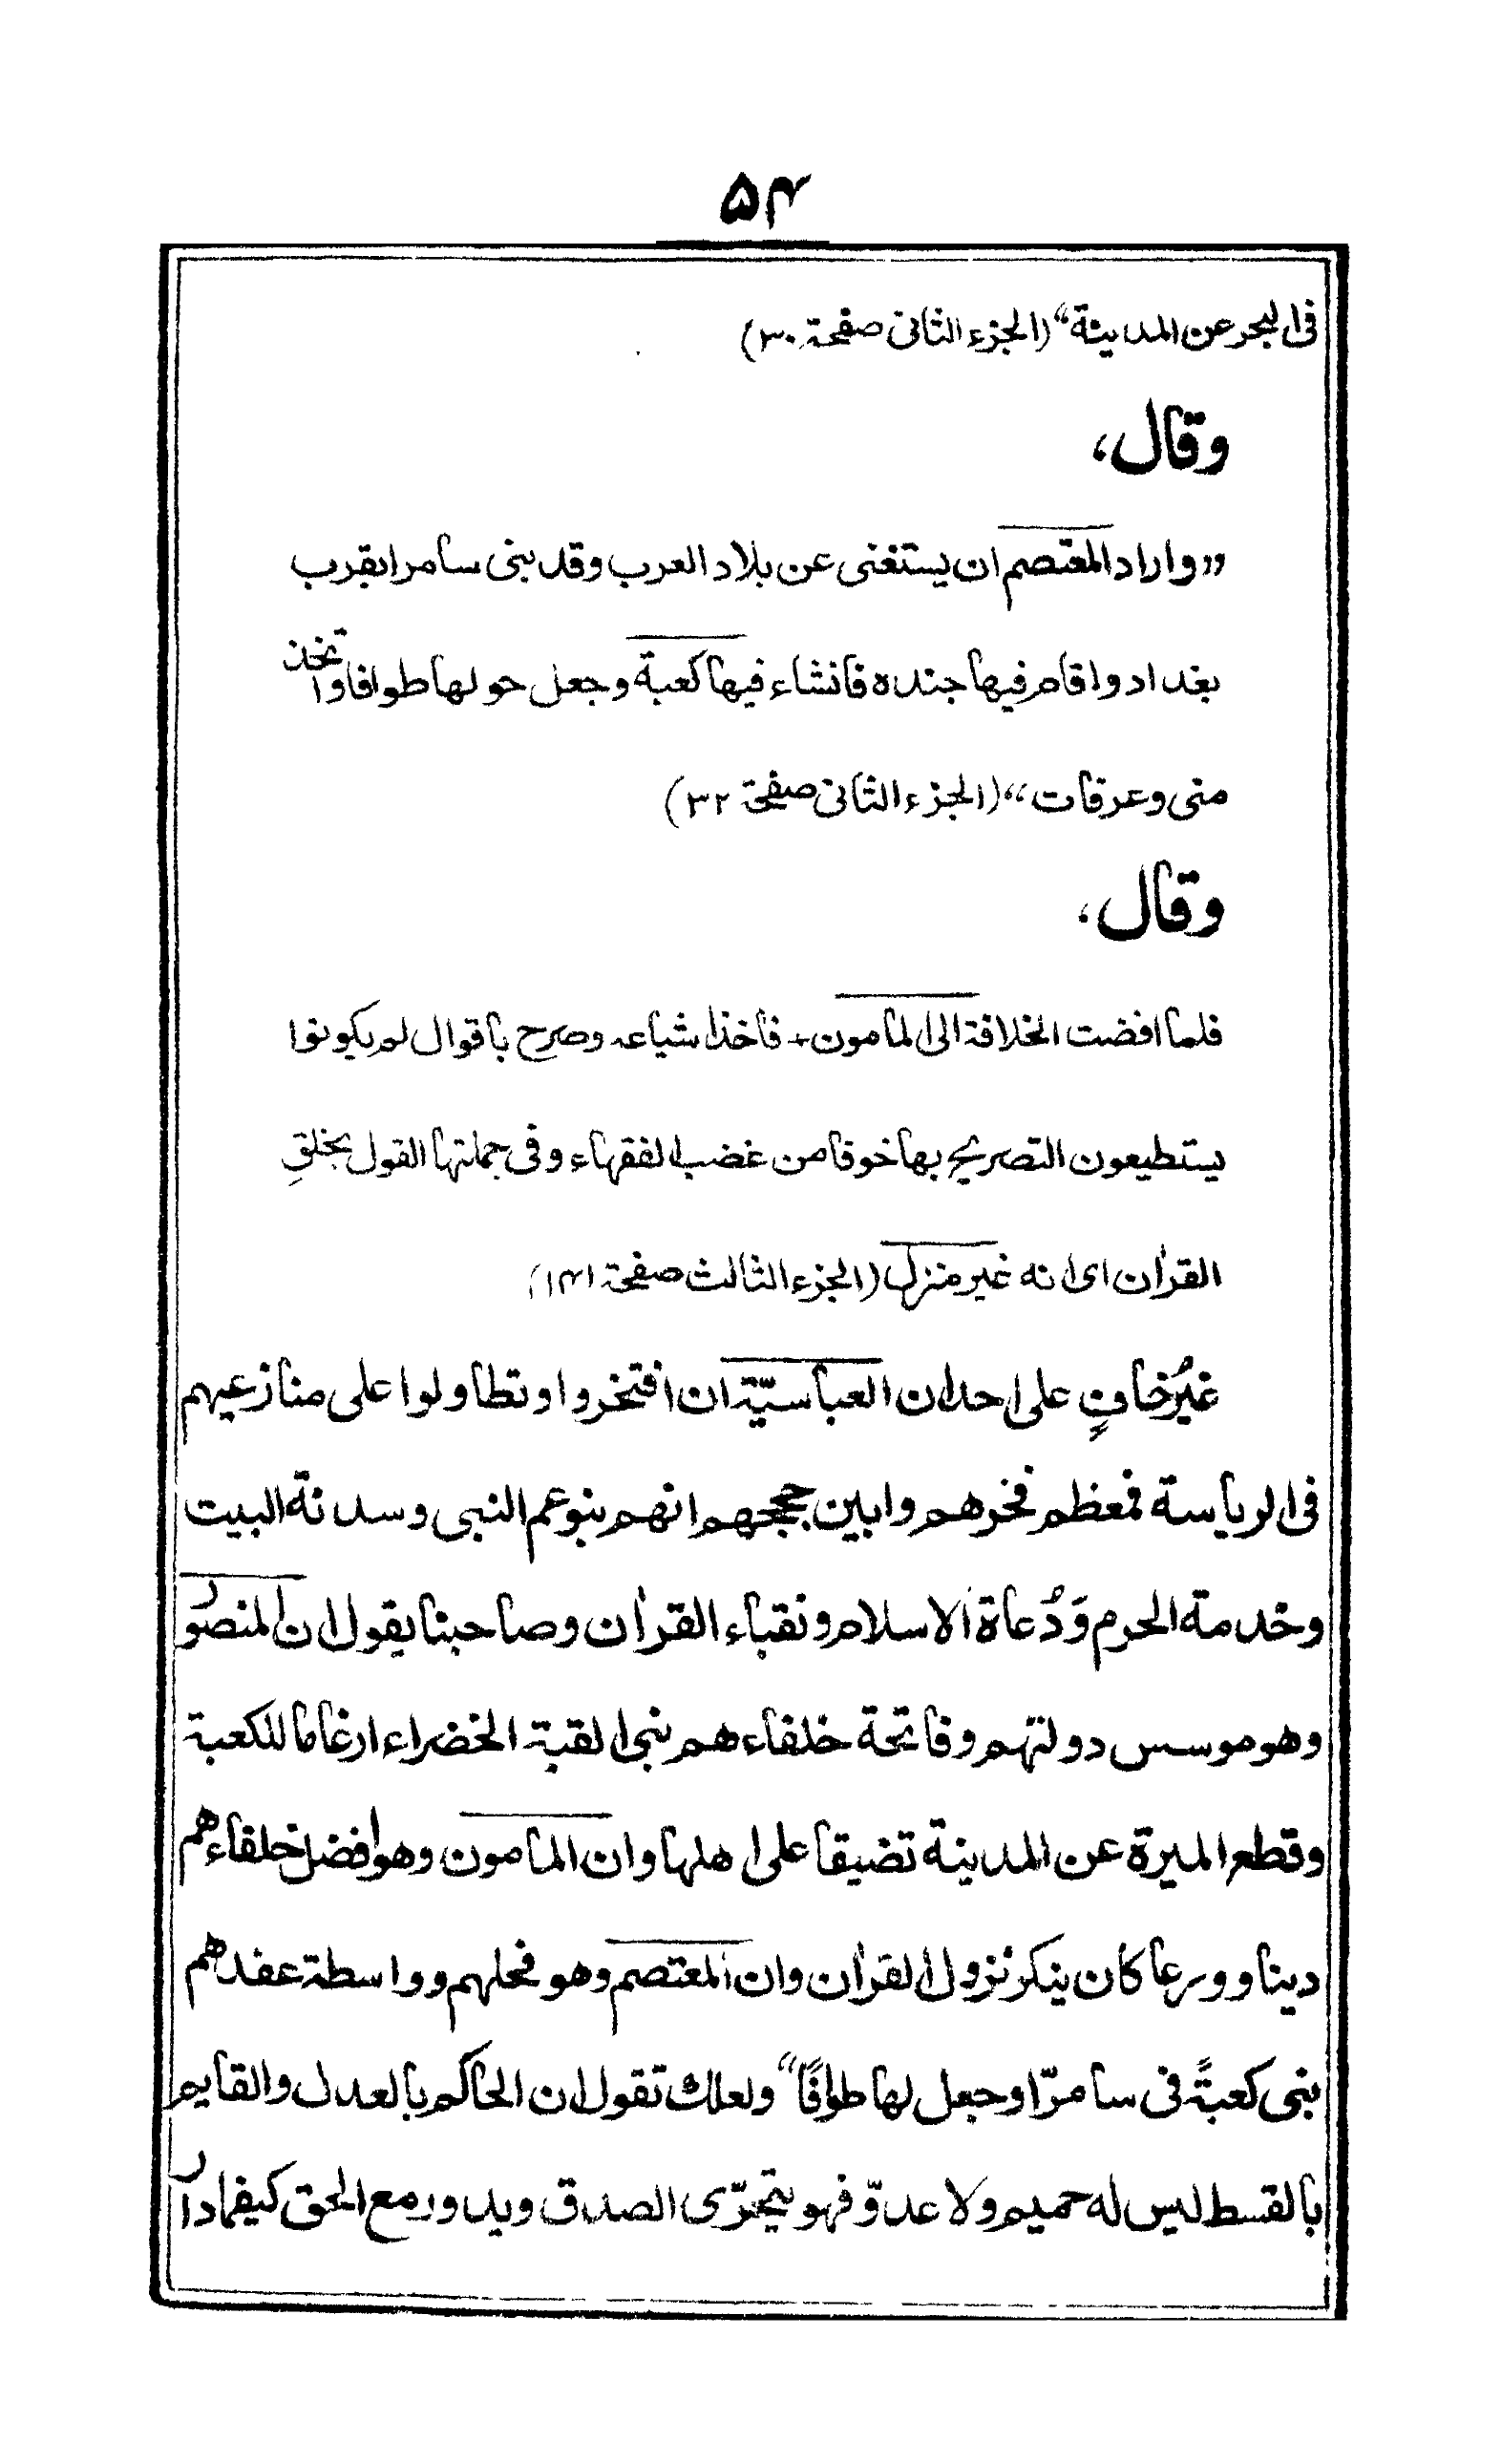 ۵۴
فی البحر عن المدینة“ (الجزء الثانی صفحة ۳۰)
وقال،
”واراد المعتصم ان یستغنی عن بلاد العرب وقد بنی سامرا بقرب
بغداد واقام فیها جنده فانشاء فیها کعبة وجعل حولها طوافا واتخذ
منی وعرفات“ (الجزء الثانی صفحة ۳۲)
وقال،
فلما افضت الخلافة الی المامون + فاخذ اشیاعه وصرح باقوال لم یکونوا
یستطیعون التصریح بها خوفا من غضب الفقهاء وفی جملتها القول بخلقِ
القرٰان ای انه غیر منزل (الجزء الثالث صفحة ۱۴۱)
غیرُ خافٍ علی احد ان العباسیّة ان افتخروا وتطاولوا علی منازعیهم
فی الریاسة فمعظم فخرهم وابین حججهم انهم بنو عم النبی وسدنة البیت
وخدمة الحرم وَدُعاة الاسلام ونقباء القرٰان وصاحبنا یقول ان المنصور
وهو موسس دولتهم وفاتحة خلفاءهم بنی القبة الخضراء ارغاما للکعبة
وقطع المیرة عن المدینة تضیقا علی اهلها وان المامون وهو افضل خلفاءهم
دینا وورعا کان ینکر نزول القرٰان وان المعتصم وهو فحلهم وواسطة عقدهم
بنی کعبةً فی سامرّا وجعل لها طوافًا“ ولعلك تقول ان الحاکم بالعدل والقایم
بالقسط لیس له حمیم ولا عدوّ فهو یتحرّی الصدق ویدور مع الحق کیفما دار